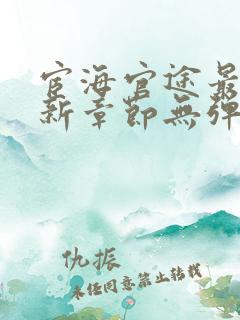 宦海官途最
新章節無彈
仇振
未经同意禁止转载